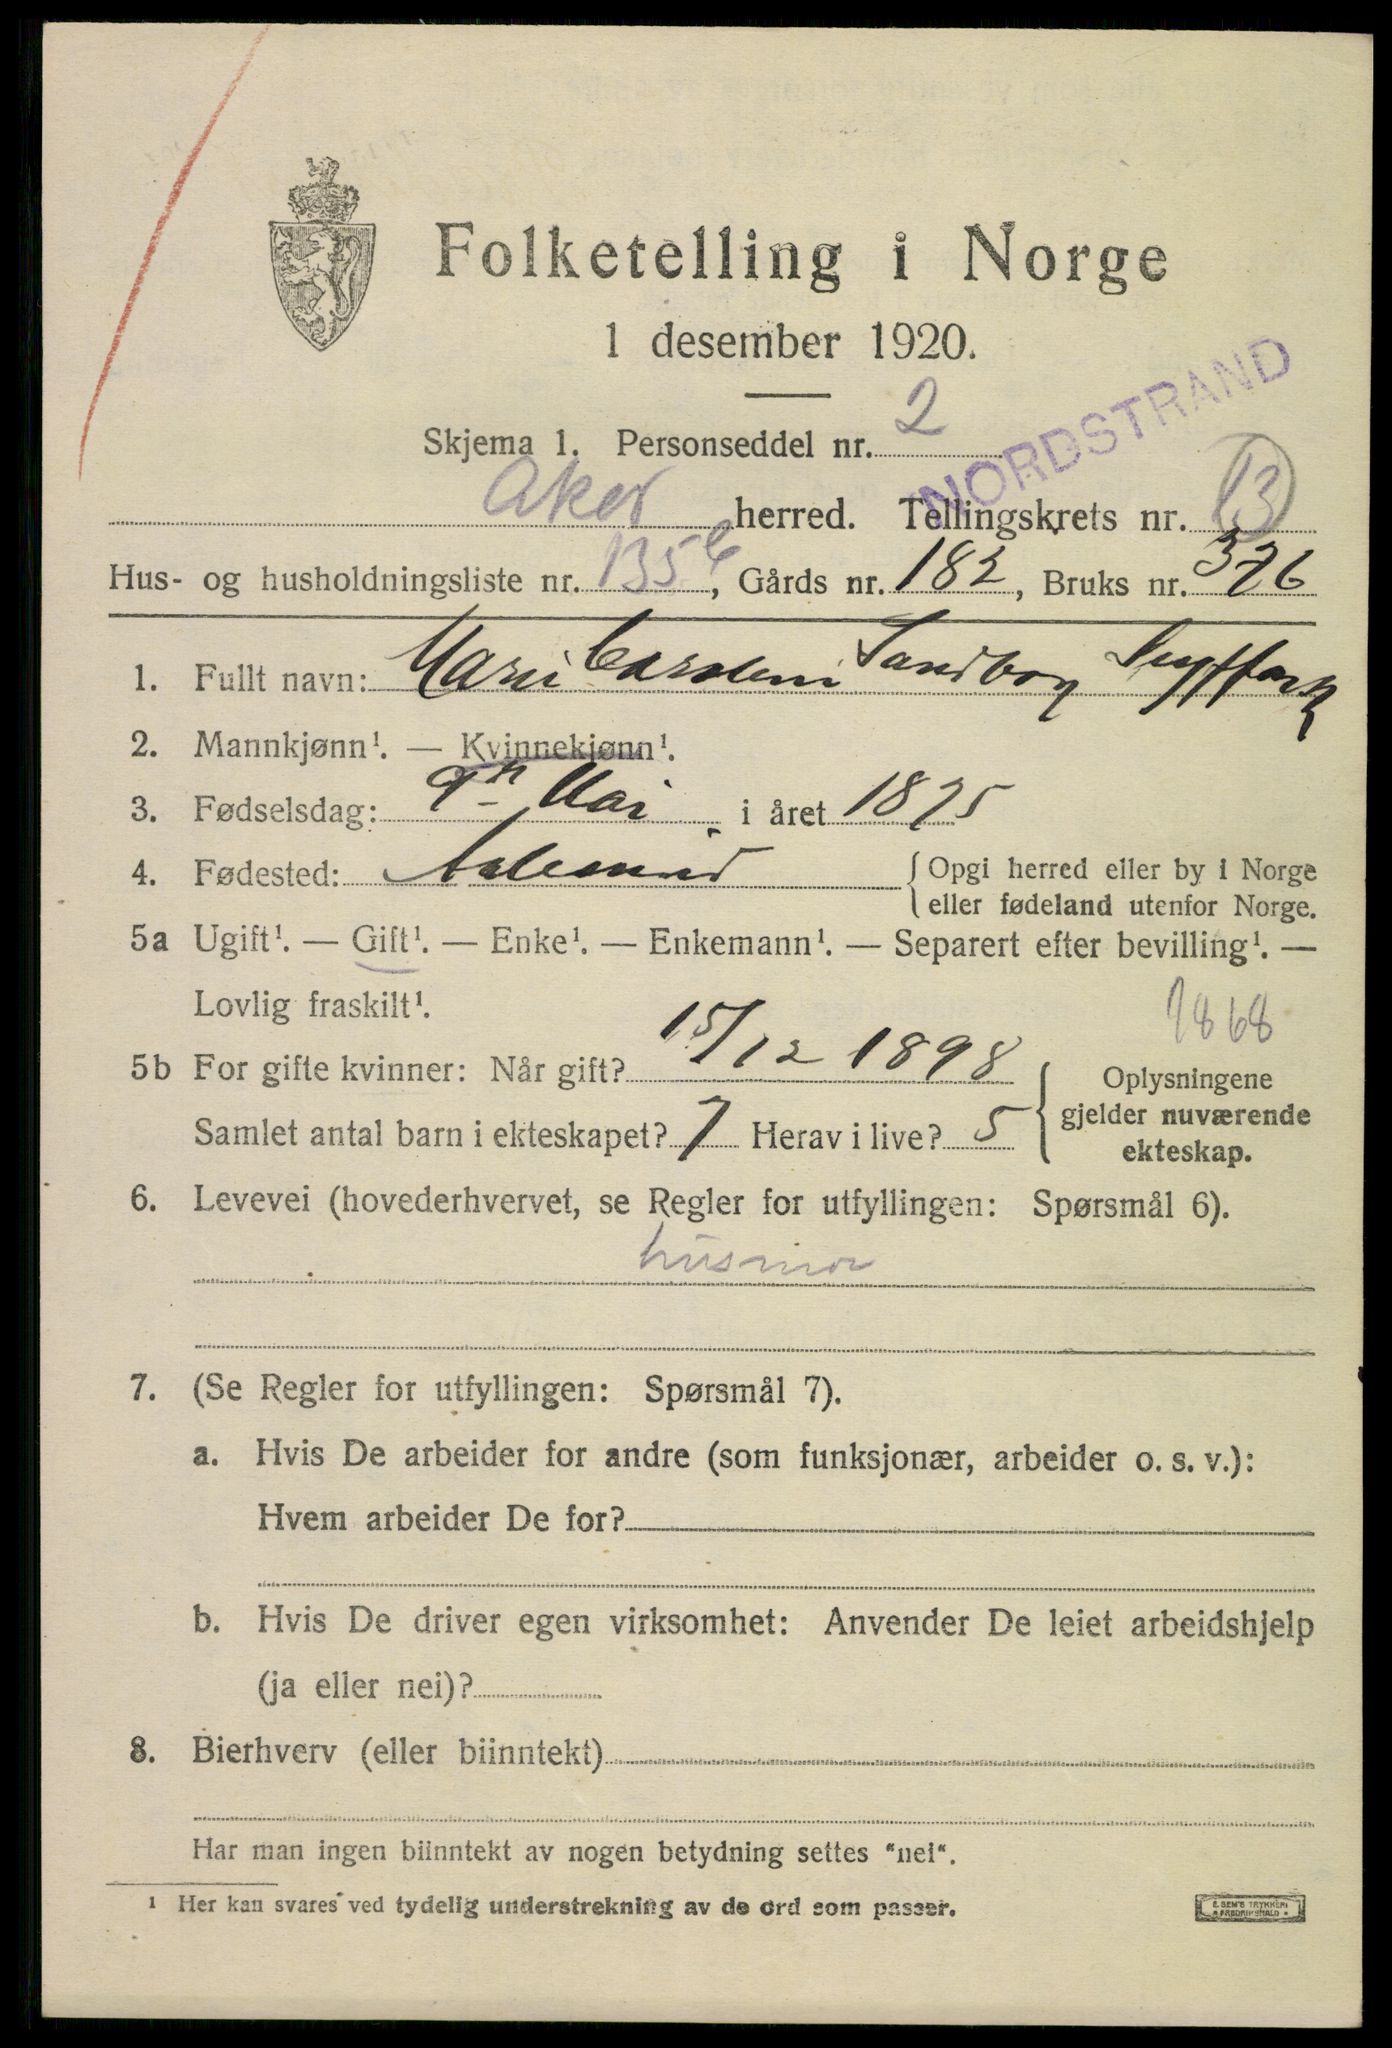 Folketelling i Norge
1 desember 1920.
NORDSTRAND
Skjema 1. Personseddel nr. 2
Aker herred. Tellingskrets nr. 13
Hus- og husholdningsliste nr. 135 b, Gårds nr. 182, Bruks nr. 376
1. Fullt navn: Marie Sandborg
2. Mannkjønn¹. — Kvinnekjønn¹.
3. Fødselsdag: 9n Mai i året 1875
4. Fødested: Aalesund {Opgi herred eller by i Norge
eller fødeland utenfor Norge.
5a Ugift¹. — Gift¹. — Enke¹. — Enkemann¹. — Separert efter bevilling¹. —
Lovlig fraskilt¹.
1868
5b For gifte kvinner: Når gift? 15/12 1898 { Oplysningene
gjelder nuværende
Samlet antal barn i ekteskapet? 7 Herav i live? 5
ekteskap.
6. Levevei (hovederhvervet, se Regler for utfyllingen: Spørsmål 6).
husmor
7. (Se Regler for utfyllingen: Spørsmål 7).
a. Hvis De arbeider for andre (som funksjonær, arbeider o. s. v.):
Hvem arbeider De for?
b. Hvis De driver egen virksomhet: Anvender De leiet arbeidshjelp
(ja eller nei)?
8. Bierhverv (eller biinntekt)
Har man ingen biinntekt av nogen betydning settes "nei".
1 Her kan svares ved tydelig understrekning av de ord som passer.
E. SEM'S TRYKKERI
FREDRIKSHALD